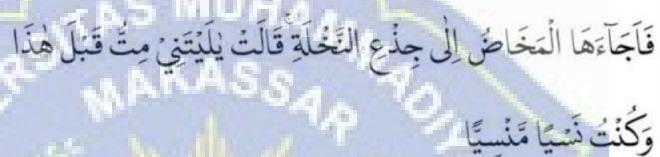 فَاَجَاۤءَهَا الْمَخَاضُ اِلٰى جِذْعِ النَّخْلَةِۚ قَالَتْ يٰلَيْتَنِيْ مِتُّ قَبْلَ هٰذَا
وَكُنْتُ نَسْيًا مَّنْسِيًّا
MUHAMMADIY
MAKASSAR